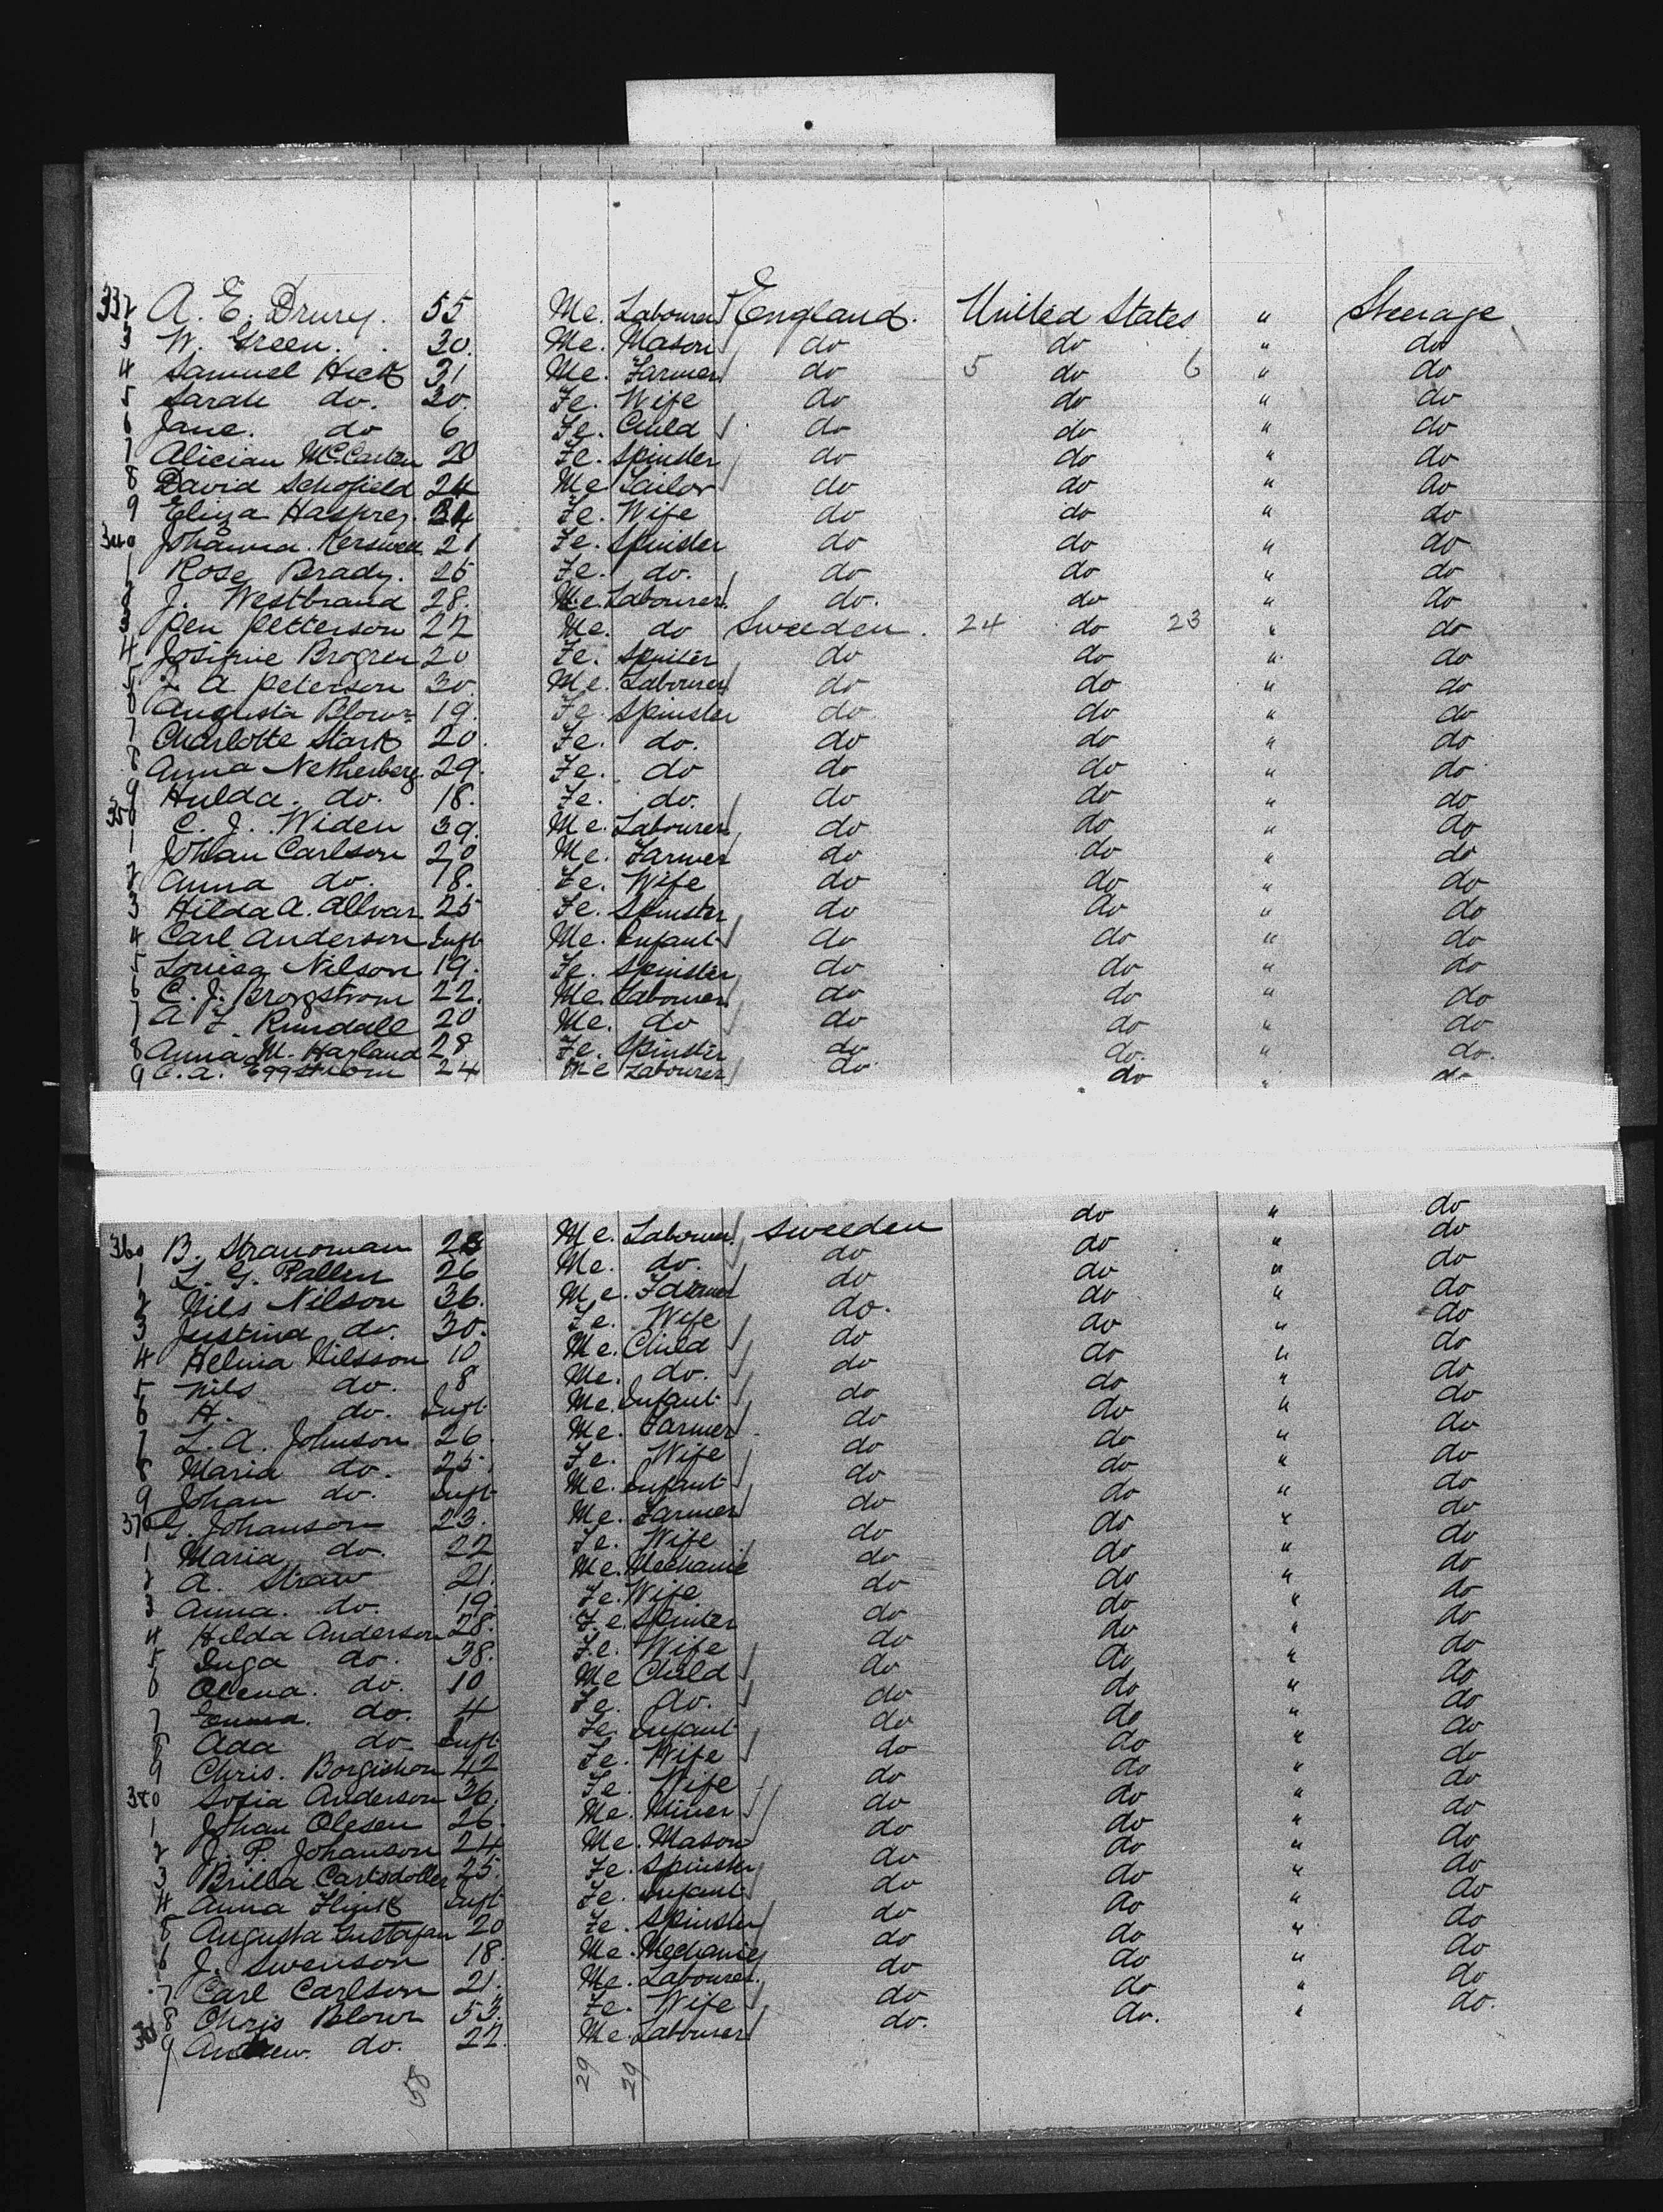 332 A. E. Drury. 55 Me. Labourer England. United States " Steerage
3 W. Green. 30. Me. Mason do do " do
4 Samuel Hick 31 Me. Farmer do 5 do 6 " do
5 Sarah do. 30. Fe. Wife do do " do
6 Jane. do 6 Fe. Child do do " do
7 Alician McCarten 20 Fe. Spinster do do " do
8 David Schofield 24 Me Tailor do do " do
9 Eliza Hasprey. 34 Fe. Wife do do " do
340 Johanna 21 Fe. Spinster do do " do
1 Rose Brady. 25 Fe. do. do do " do
2 J. Westbrand 28. Me. Labourer. do. do " do
3 Pen Petterson 22 Me. do Sweeden. 24 do 23 " do
4 Josifine Brogren 20 Fe. Spniter do do " do
5 J. A Peterson 30. Me. Labourer do do " do
6 Augusta Blowr 19. Fe. Spinster do do " do
7 Charlotte Stark 20. Fe. do. do do " do
8 Anna Netherberg. 29. Fe. do do do " do
9 Hulda. do. 18. Fe. do. do do " do
350 C. J. Widen 39. Me. Labourer do do " do
1 Johan Carlson 20 Me. Farmer do do " do
2 Anna do. 18. Fe. Wife do do " do
3 Hilda A. Allvar 25 Fe. Spinster do do " do
4 Carl Anderson Inft Me. Infant do do " do
5 Louisa Nilson 19. Fe. Spinster do do " do
6 C. J. Brogstrom 22. Me. Labourer do do " do
7 A F. Rundall 20 Me. do do do " do
8 Anna M. Harland 28 Fe. Spinster do do. " do.
9 C. A. Eggstrom 24 Me Labourer do do " do
360 B. Stranoman 23 Me. Labourer Sweeden do " do
1 L. G. Pallen 26 Me. do. do do " do
2 Nils Nilson 36. Me. Farmer do do " do
3 Justina do. 30. Fe. Wife do. do " do
4 Helina Nilsson 10 Me. Child do do " do
5 Nils do. 8 Me. do. do do " do
6 H. do. Inft Me. Infant do do " do
7 L. A. Johnson 26. Me. Farmer do do " do
8 Maria do. 25. Fe. Wife do do " do
9 Johan do. Inft Me. Infant do do " do
370 G. Johanson 23. Me. Farmer do do " do
1 Maria do. 22 Fe. Wife do do " do
2 A. Straw 21. Me. Mechanic do do " do
3 Anna. do. 19. Fe. Wife do do " do
4 Hilda Anderson 28. Fe. Spinter do do " do
5 Inga do. 38. Fe. Wife do do " do
6 Olena. do. 10 Me Child do do " do
7 Emma. do. 4 Fe. do. do do " do
8 Ada do Inft Fe. Infant do do " do
9 Chris. Borgishon 42 Fe. Wife do do " do
380 Sofia Anderson 36. Fe. Wife do do " do
1 Johan Olesen 26. Me. Miner do do " do
2 J. P. Johanson 24 Me. Mason do do " do
3 Brilla Carlsdotter 25. Fe. Spinster do do " do
4 Anna Flink Inft Fe. Infant do do " do
5 Augusta Gustafan 20 Fe. Spinster do do " do
6 J. Swenson 18. Me. Mechanic do do " do
7 Carl Carlson 21. Me. Labourer. do do " do
8 Chris Blowr 53. Fe. Wife do do " do
9 Andrew. do. 22. Me. Labourer do. do. " do.
58 29 29